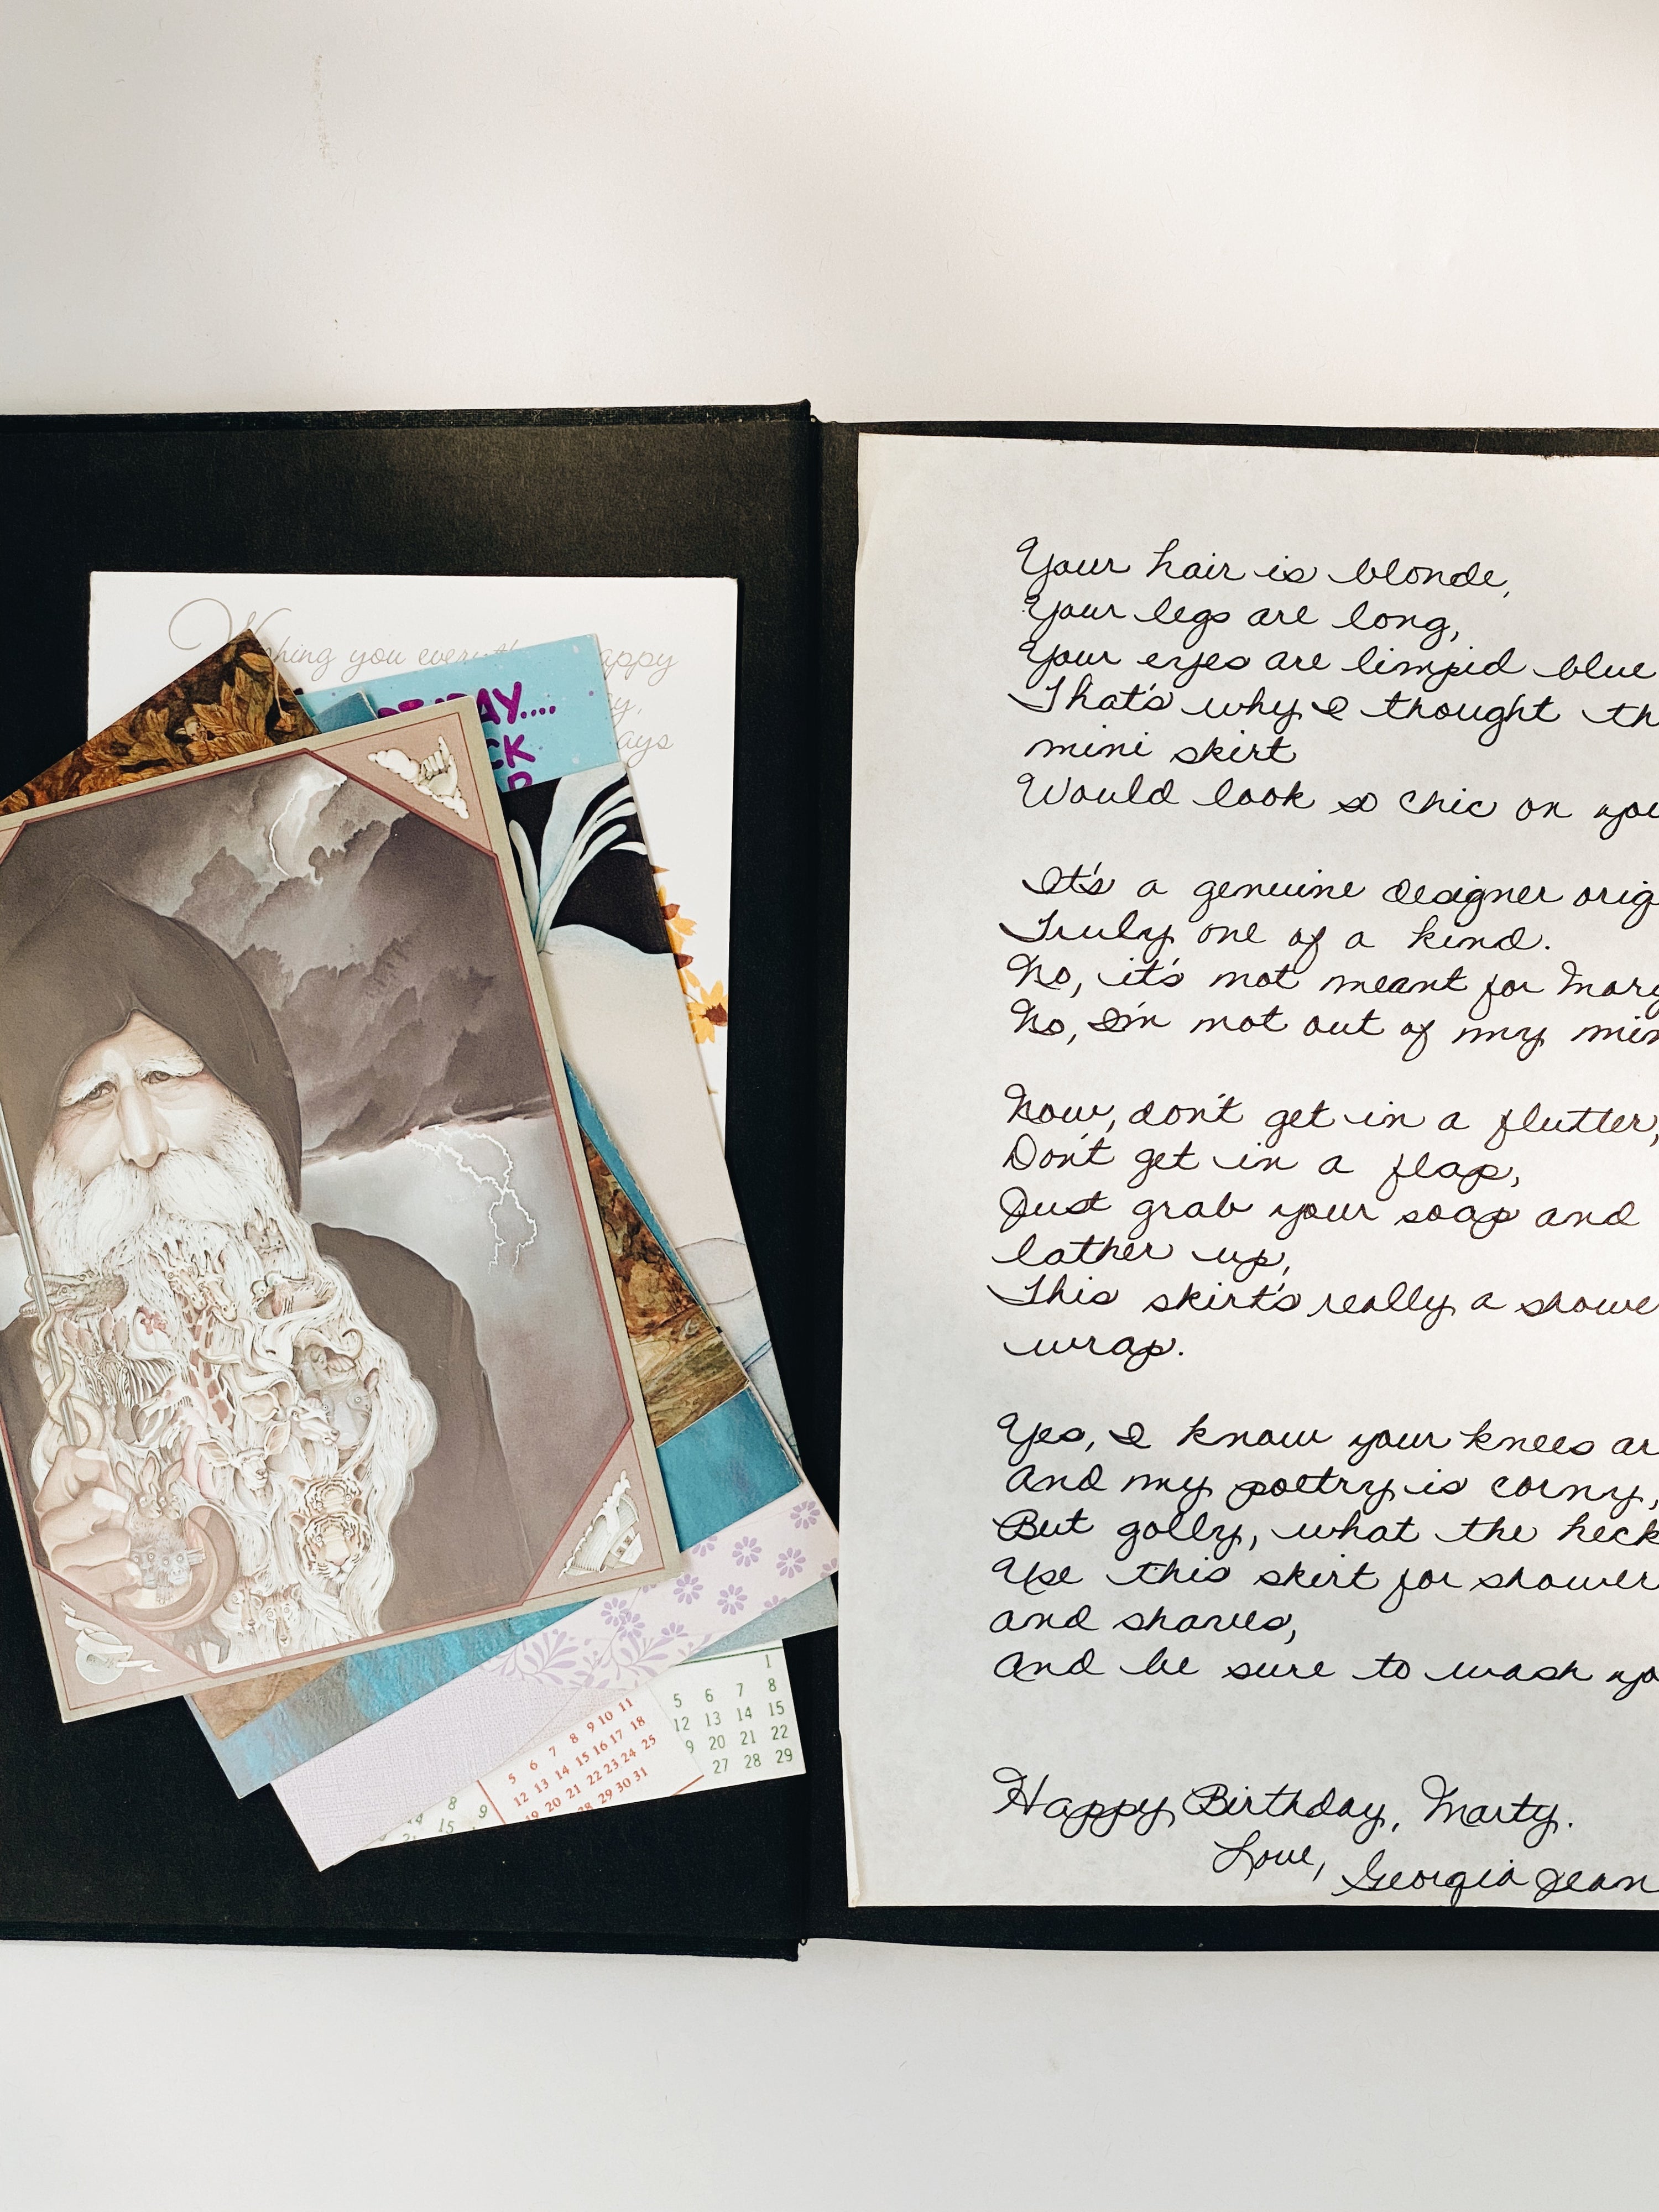 Wishing you everyth appy
y,
ays
DAY....
CK
Your hair is blonde,
Your legs are long,
Your eyes are limpid blue
That's why I thought th
mini skirt
Would look so chic on you
It's a genuine designer orig
Truly one of a kind.
No, it's not meant for Mary
No, I'm not out of my min
Now, don't get in a flutter,
Don't get in a flap,
Just grab your soap and
lather up,
This skirt's really a showe
wrap.
Yes, I know your knees ar
And my poetry is corny,
But golly, what the heck
Use this skirt for shower
and shaves,
And be sure to wash yo
Happy Birthday, Marty.
Love, Georgia Jean
1
5 6 7 8
12 13 14 15
9 20 21 22
27 28 29
5 6 7 8 9 10 11
12 13 14 15 16 17 18
19 20 21 22 23 24 25
28 29 30 31
8 9
14 15